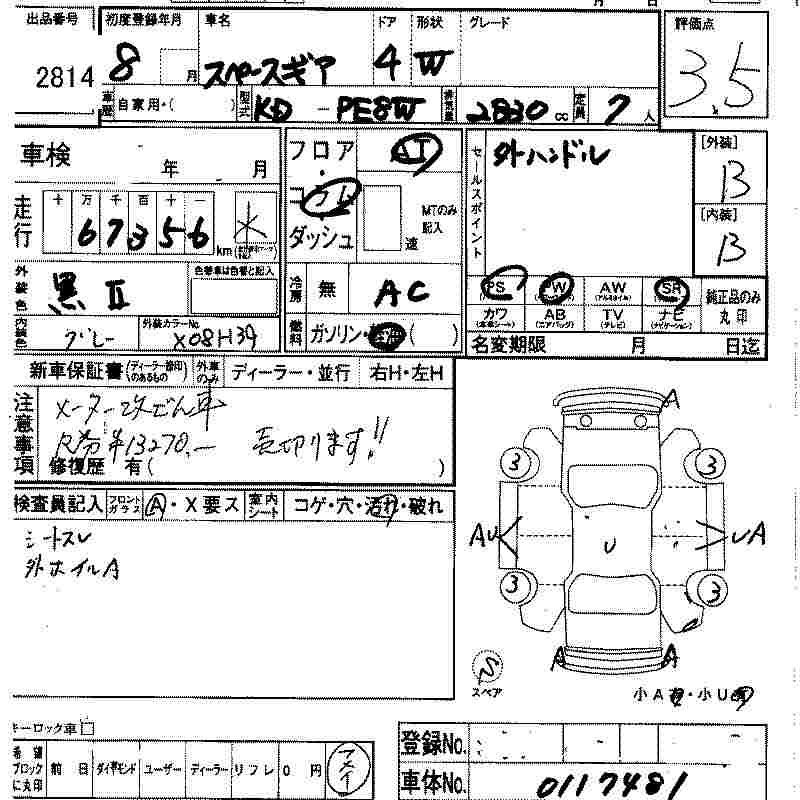 出品番号 初度登録年月 車名 ドア 形状 グレード 評価点
2814 8 月 スペースギア 4 W 3.5
車歴 自家用・( ) 型式 KD - PE8W 排気量 2830 cc 定員 7 人
車検 年 月
フロア・コラム・ダッシュ AT MTのみ記入 速
セールスポイント 外ハンドル
[外装] B
[内装] B
走行 十 万 千 百 十 一
67356 km
外装色 黒 II 色替車は色替と記入
内装色 グレー 外装カラーNo. X08H39
冷房 無 AC
燃料 ガソリン・軽油 ( )
PS PW AW SR 純正品のみ丸印
カワ AB TV ナビ
(本革シート) (エアバッグ) (テレビ) (ナビゲーション)
名変期限 月 日迄
新車保証書 (ディーラー捺印のあるもの) 外車のみ ディーラー・並行 右H・左H
注意事項 メーター改ざん車
リ券 ¥13270.— 売切ります!!
修復歴 有( )
検査員記入 フロントガラス A・X要ス 室内シート コゲ・穴・汚れ・破れ
シートスレ
外ホイルA
A
3 3
AU U UA
3 3
A A
スペア 小A・小U
キーロック車
希望ブロックに丸印 前日 ダイヤモンド ユーザー ディーラー リフレ 0円
登録No.
車体No. 0117481